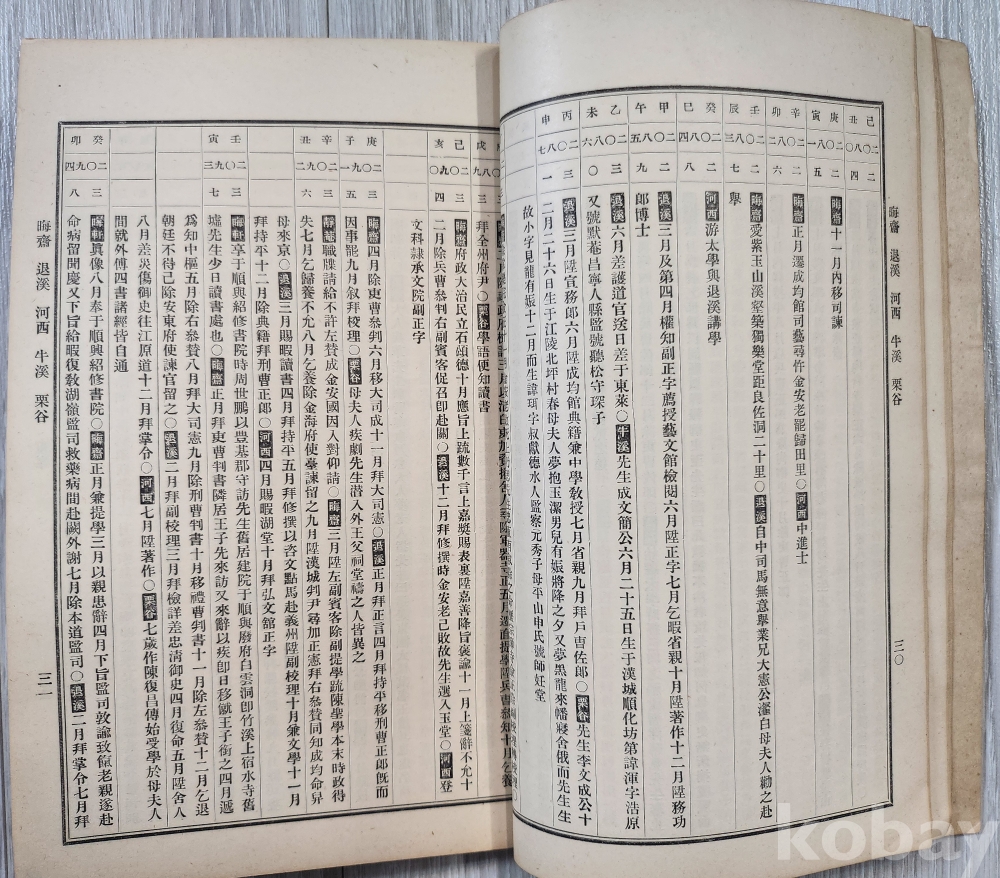 晦齋 退溪 河西 牛溪 栗谷
三〇
己丑 二〇八〇 二四
庚寅 二〇八一 二五
晦齋十一月內移司諫
辛卯 二〇八二 二六
晦齋正月遷成均館司藝尋忤金安老罷歸田里〇河西中進士
壬辰 二〇八三 二七
晦齋愛紫玉山溪壑築獨樂堂距良佐洞二十里〇退溪自中司馬無意舉業兄大憲公瀣白母夫人勸之赴
舉
癸巳 二〇八四 二八
河西游太學與退溪講學
甲午 二〇八五 二九
退溪三月及第四月權知副正字薦授藝文館檢閱六月陞正字七月乞暇省親十月陞著作十二月陞務功
郎博士
乙未 二〇八六 三〇
退溪六月差護送官送日差于東萊〇牛溪先生成文簡公六月二十五日生于漢城順化坊第諱渾字浩原
又號默菴昌寧人縣監號聽松守琛子
丙申 二〇八七 三一
退溪三月陞宣務郎六月陞成均館典籍兼中學敎授七月省親九月拜戶曹佐郎〇栗谷先生李文成公十
二月二十六日生于江陵北坪村春母夫人夢抱玉兒有娠將降之夕又夢黑龍來幡寢舍俄而先生生
故小字見龍有娠十二月而生諱珥字叔獻德水人監察元秀子母平山申氏號師妊堂
拜全州府尹〇栗谷學語便知讀書
己亥 二〇九〇 三四
晦齋府政大治民立石頌德十月應旨上疏數千言上嘉奬賜表裏陞嘉善降旨褒諭十一月上箋辭不允十
二月除兵曹參判右副賓客促召卽赴闕〇退溪十二月拜修撰時金安老已敗故先生選入玉堂〇河西登
文科隸承文院副正字
庚子 二〇九一 三五
晦齋四月除吏曹參判六月移大司成十一月拜大司憲〇退溪正月拜正言四月拜持平移刑曹正郎旣而
因事罷九月敘拜校理〇栗谷母夫人疾劇先生潛入外王父祠堂禱之人皆異之
辛丑 二〇九二 三六
靜菴職牒請給不許左贊成金安國因入對仰請〇晦齋三月陞左副賓客除副提學疏陳聖學本末時政得
失七月乞歸養不允八月乞養除金海府使臺諫留之九月陞漢城判尹尋加正憲拜右參贊同知成均命舁
母來京〇退溪三月賜暇讀書四月拜持平五月拜修撰以咨文點馬赴義州陞副校理十月兼文學十一月
拜持平十二月除典籍拜刑曹正郎〇河西四月賜暇湖堂十月拜弘文館正字
壬寅 二〇九三 三七
晦軒享于順興紹修書院時周世鵬以豊基郡守訪先生舊居建院于順興廢府白雲洞卽竹溪上宿水寺舊
墟先生少日讀書處也〇晦齋正月拜吏曹判書隣居王子先來訪又來辭以疾卽日移就王子銜之四月遞
爲知中樞五月除右參贊八月拜大司憲九月除刑曹判書十月移禮曹判書十一月除左參贊十二月乞退
朝廷不得已除安東府使諫官留之〇退溪二月拜副校理三月拜檢詳差忠淸御史四月復命五月陞舍人
八月差災傷御史往江原道十二月拜掌令〇河西七月陞著作〇栗谷七歲作陳復昌傳始受學於母夫人
間就外傅四書諸經皆自通
癸卯 二〇九四 三八
晦軒眞像八月奉于順興紹修書院〇晦齋正月兼提學三月以親患辭四月下旨監司敦諭致餼老親遂赴
命病留聞慶又下旨給暇復敎湖嶺監司救藥病間赴闕外謝七月除本道監司〇退溪二月拜掌令七月拜
晦齋 退溪 河西 牛溪 栗谷
三一
kobay